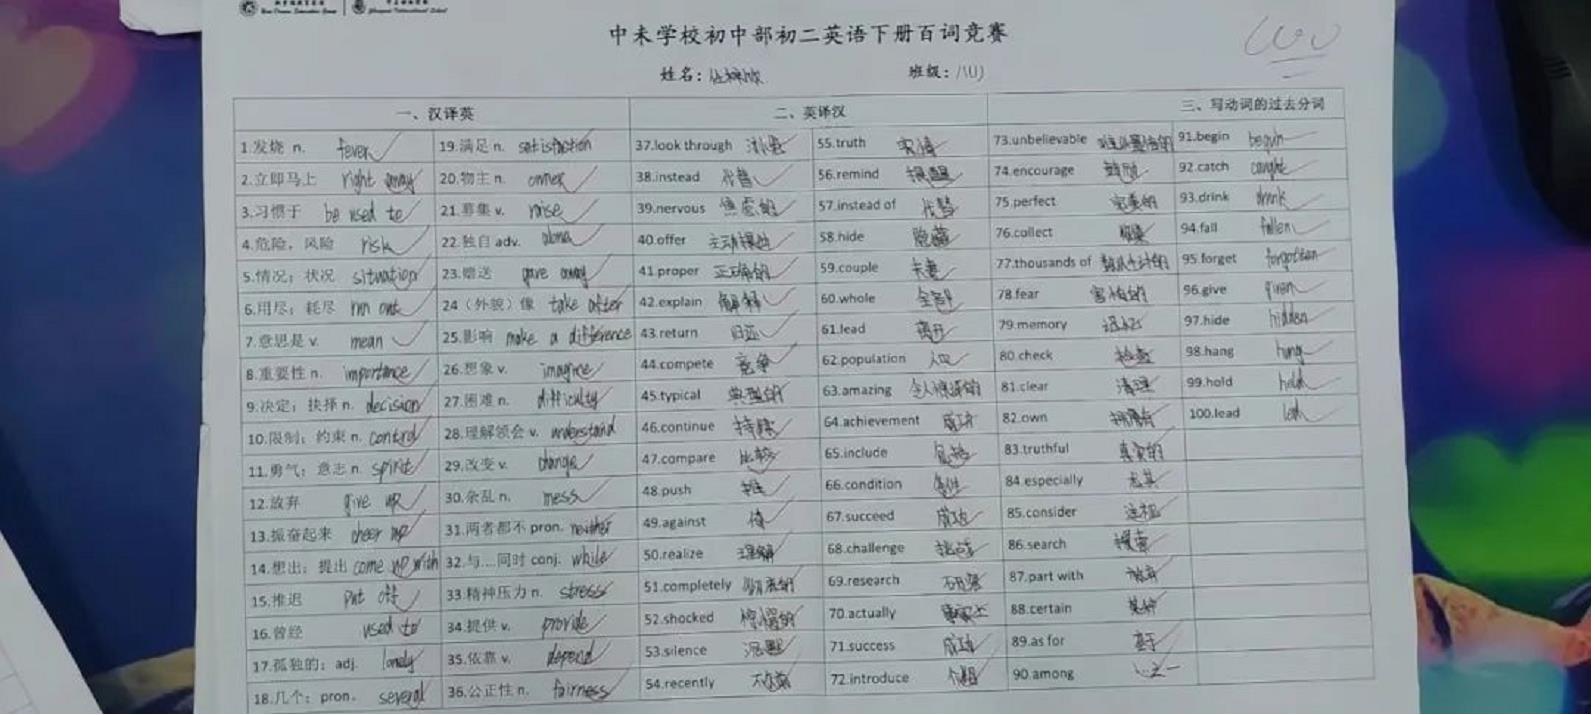 中未学校初中部初二英语下册百词竞赛
姓名： 班级：
一、汉译英 二、英译汉 三、写动词的过去分词
1.发烧 n. fever 19.满足 n. satisfaction 37.look through 浏览 55.truth 实情 73.unbelievable 难以置信的 91.begin begun
2.立即马上 right away 20.物主 n. owner 38.instead 代替 56.remind 提醒 74.encourage 鼓励 92.catch caught
3.习惯于 be used to 21.募集 v. raise 39.nervous 焦虑的 57.instead of 代替 75.perfect 完美的 93.drink drunk
4.危险，风险 risk 22.独自 adv. alone 40.offer 主动提出 58.hide 隐藏 76.collect 收集 94.fall fallen
5.情况；状况 situation 23.赠送 gave away 41.proper 正确的 59.couple 夫妻 77.thousands of 数以千计的 95.forget forgotten
6.用尽；耗尽 run out 24（外貌）像 take after 42.explain 解释 60.whole 全部 78.fear 害怕的 96.give given
7.意思是 v. mean 25.影响 make a difference 43.return 归还 61.lead 79.memory 记忆 97.hide hidden
8.重要性 n. importance 26.想象 v. imagine 44.compete 竞争 62.population 人口 80.check 检查 98.hang hung
9.决定；抉择 n. decision 27.困难 n. difficulty 45.typical 典型的 63.amazing 令人惊讶的 81.clear 清理 99.hold held
10.限制；约束 n. control 28.理解领会 v. understand 46.continue 持续 64.achievement 成功 82.own 拥有 100.lead led
11.勇气；意志 n. spirit 29.改变 v. change 47.compare 比较 65.include 包括 83.truthful 真实的
12.放弃 give up 30.杂乱 n. mess 48.push 推 66.condition 条件 84.especially 尤其
13.振奋起来 cheer up 31.两者都不 pron. neither 49.against 倚 67.succeed 成功 85.consider
14.想出；提出 come up with 32.与....同时 conj. while 50.realize 理解 68.challenge 挑战 86.search 搜索
15.推迟 put off 33.精神压力 n. stress 51.completely 彻底的 69.research 研究 87.part with 放弃
16.曾经 used to 34.提供 v. provide 52.shocked 惊愕的 70.actually 事实上 88.certain 某种
17.孤独的；adj. lonely 35.依靠 v. depend 53.silence 沉默 71.success 成功 89.as for 至于
18.几个；pron. several 36.公正性 n. fairness 54.recently 72.introduce 介绍 90.among